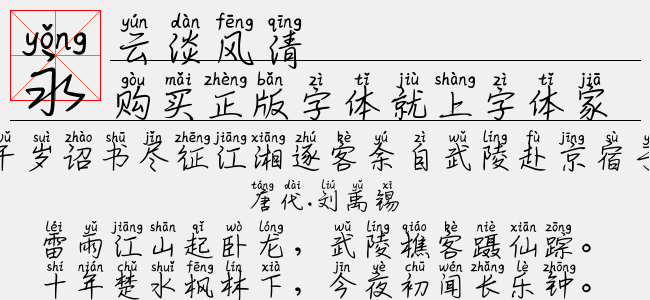 yǒng
永
yún dàn fēng qīng
云淡风清
gòu mǎi zhèng bǎn zì tǐ jiù shàng zì tǐ jiā
购买正版字体就上字体家
suì zhào shū jǐn zhēng jiāng xiāng zhú kè yú zì wǔ líng fù jīng sù
岁诏书尽征江湘逐客余自武陵赴京宿
táng dài liú yǔ xī
唐代.刘禹锡
léi yǔ jiāng shān qǐ wò lóng wǔ líng qiáo kè niè xiān zōng
雷雨江山起卧龙，武陵樵客蹑仙踪。
shí nián chǔ shuǐ fēng lín xià jīn yè chū wén zhǎng lè zhōng
十年楚水枫林下，今夜初闻长乐钟。